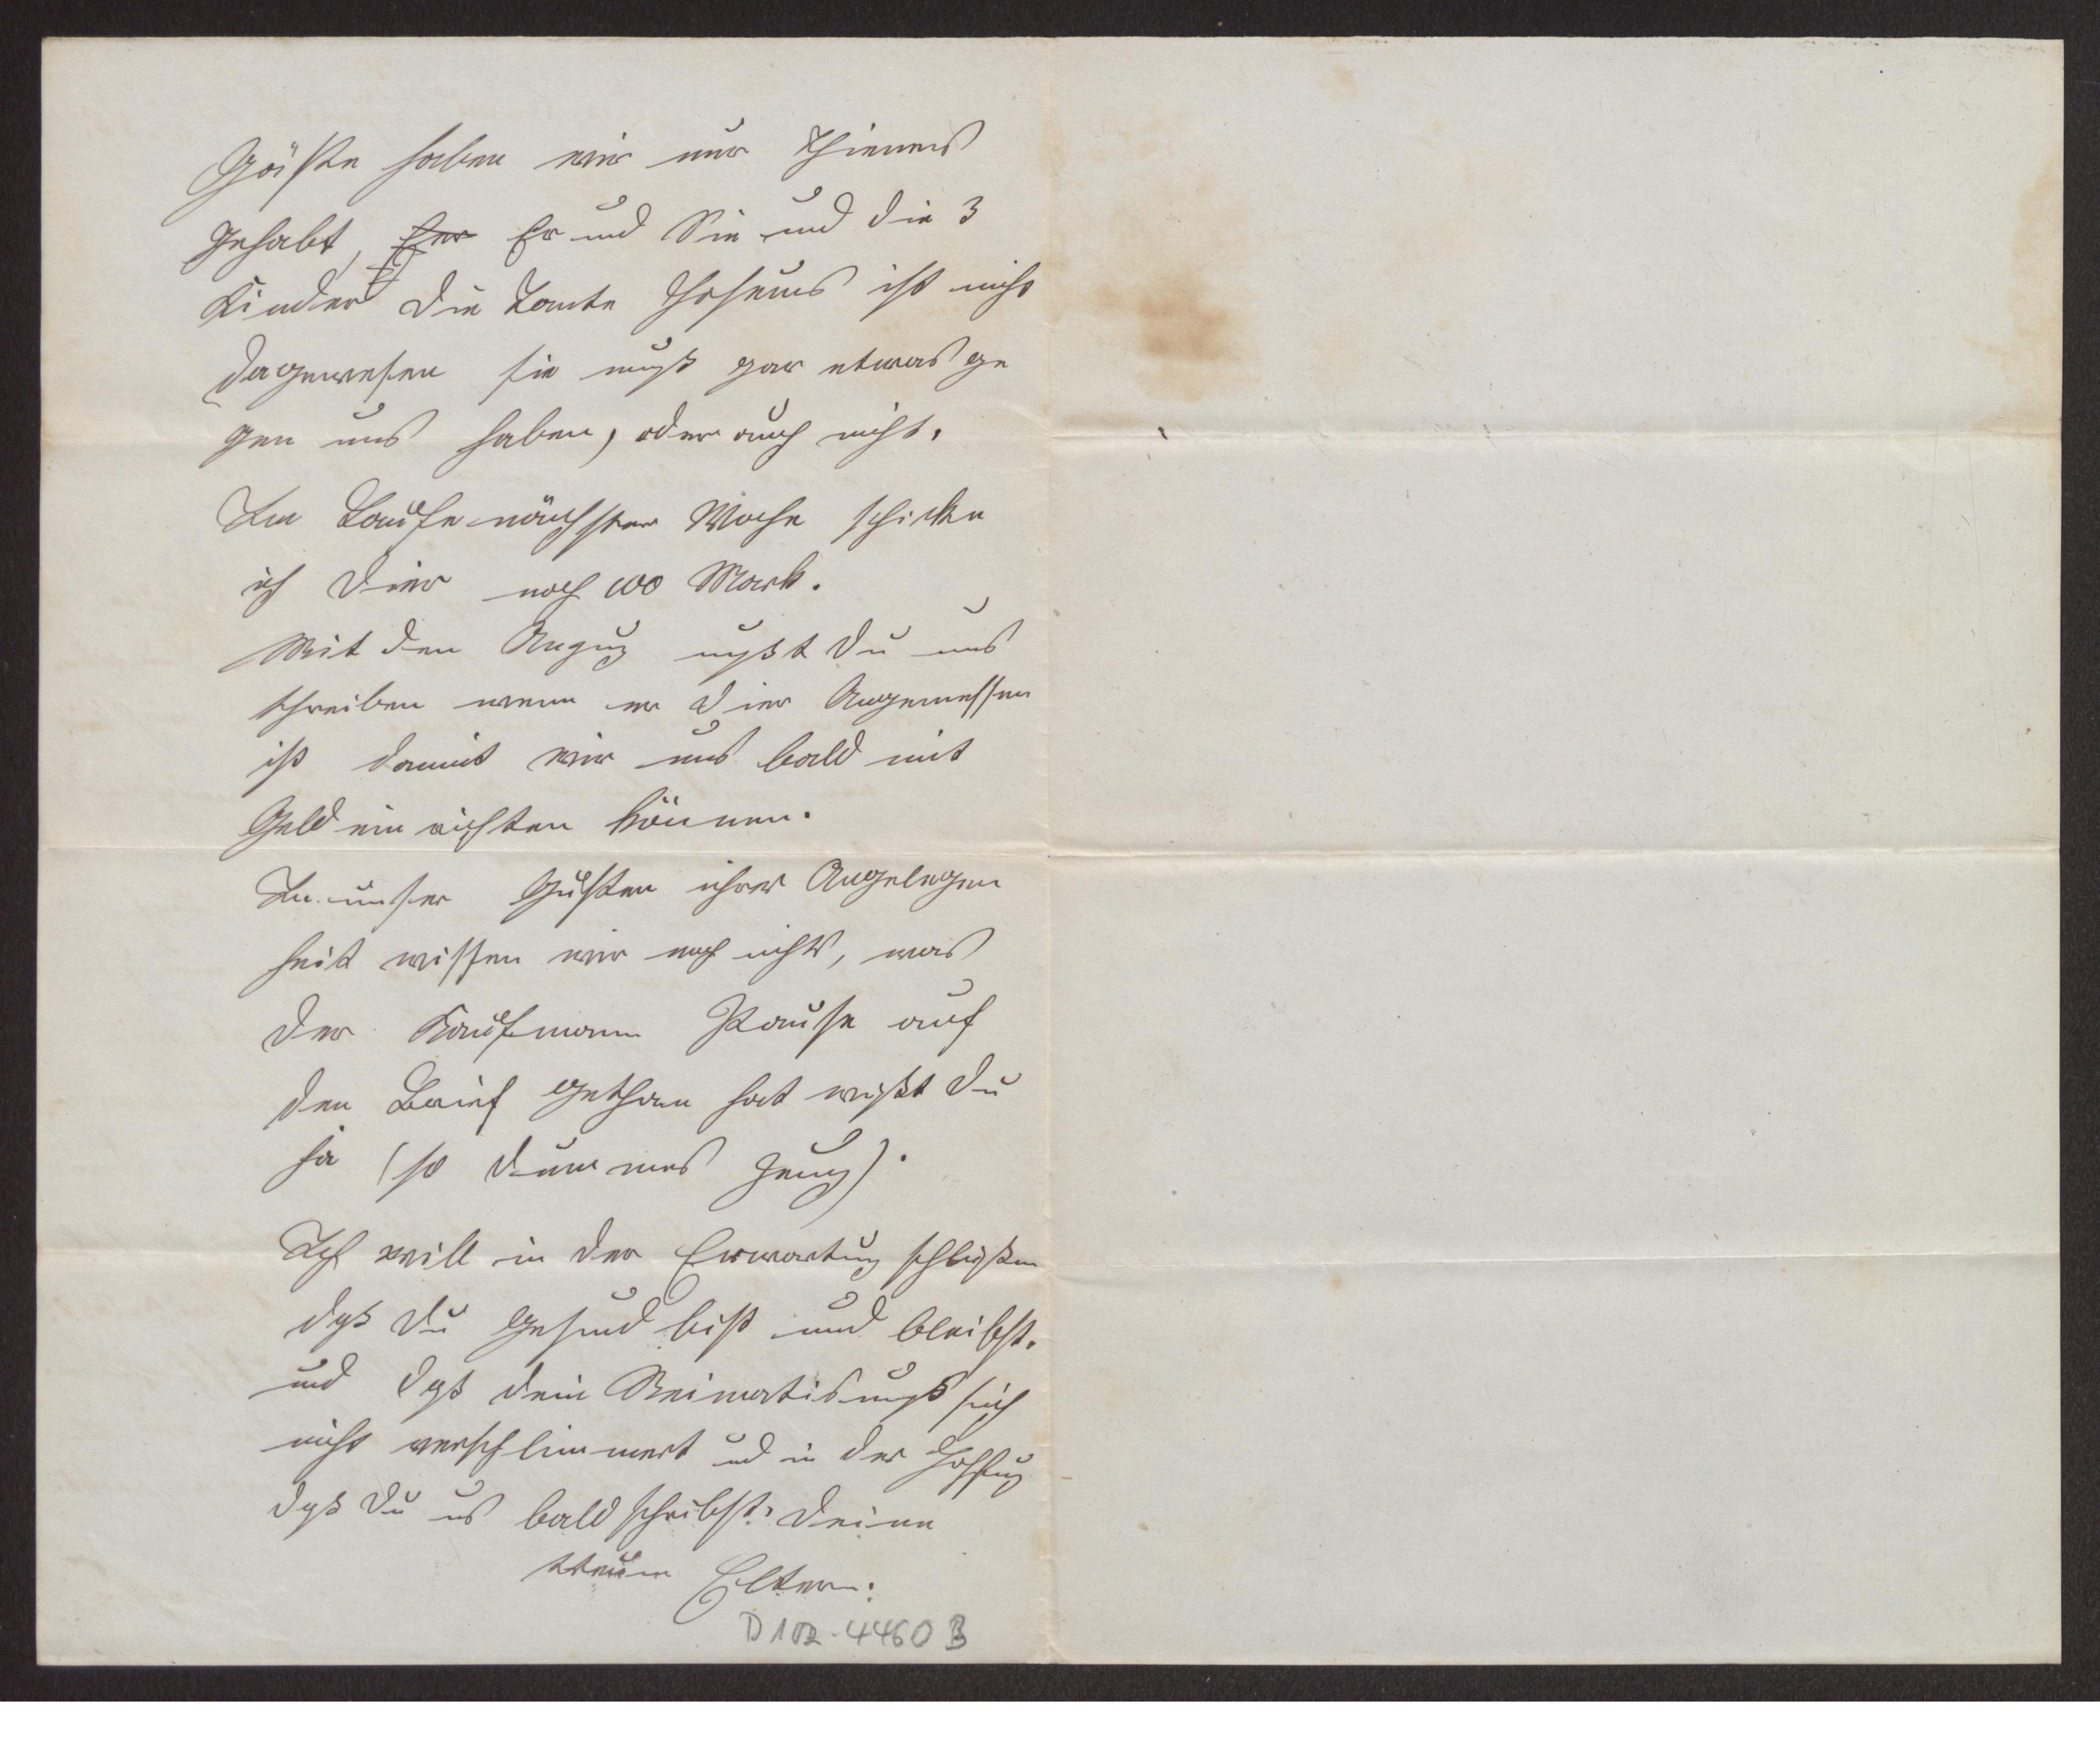 Gäste haben wir nur Thiemes
gehabt, Er und Sie und die 3
Kinder die Tante ist nicht
dagewesen sie muß gar etwas ge
gen uns haben, oder auch nicht.
Im Laufe nächster Woche schicke
ich Dier noch 100 Mark.
Mit den Anzug mußt Du uns
schreiben wenn er Dier Angemessen
ist damit wir uns bald mit
Geld ein richten können.
In unser Gusten ihrer Angelegen
heit wissen wir noch nichts, was
der Kaufmann Krause auf
den Brief gethan hat wißt Du
ja (so dummes Zeug).
Ich will in der Erwartung schlißen
daß Du Gesund bist und bleibst.
und daß dein Reimatismuß sich
nicht verschlimmert und in der Hoffnung
daß Du uns bald schreibst. Deine
treuen Eltern.
D 102-4460 B